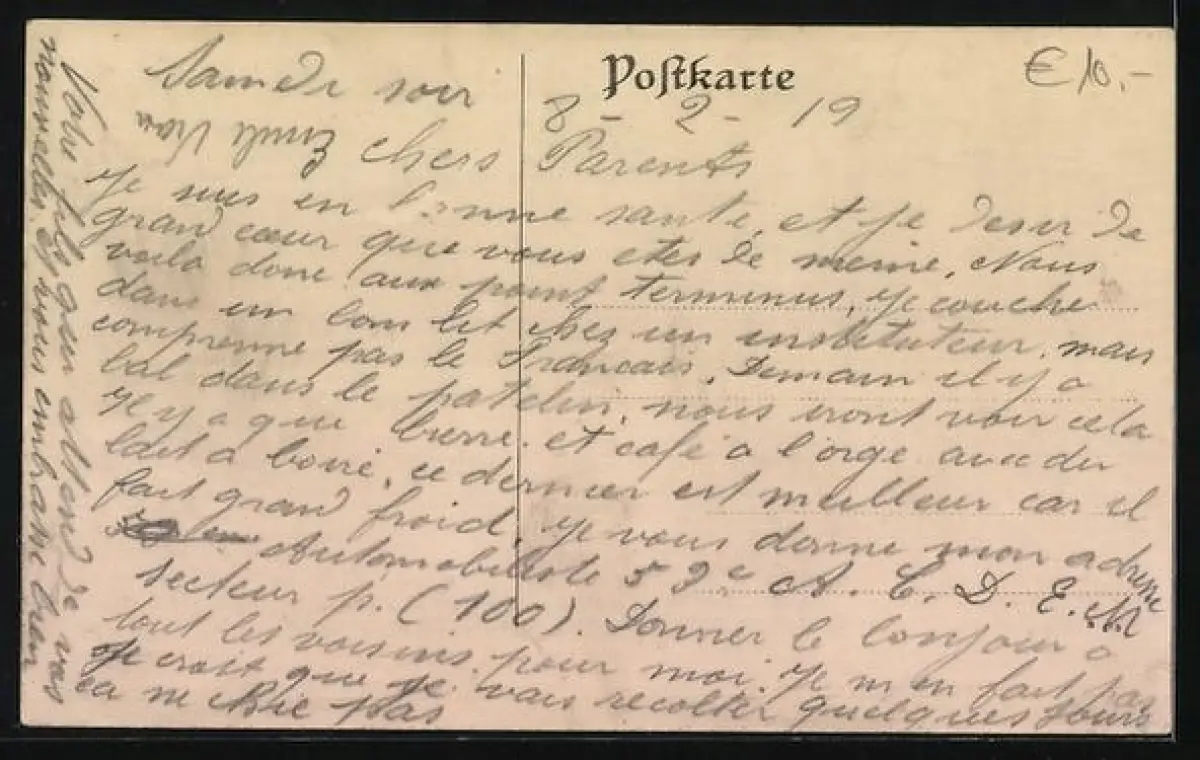 Postkarte
€ 10.-
Samedi soir 8 - 2 - 19
chers Parents
Je suis en bonne santé, et je desir de
grand cœur que vous etes de meme. Nous
voila donc aux point terminus, je couche
dans un bon lit chez un instituteur, mais
comprenne pas le Francais. Demain il y a
bal dans le patelin, nous iront voir cela
Il y a que bierre et café a l'orge avec du
lait a boire, ce dernier est meilleur car il
fait grand froid, je vous donne mon adresse
Automobiliste 59e A. C. D. E.M
secteur p. (100). Donner le bonjour a
tout les voisins pour moi. Je m en fait pas
Je croit que je vais recolter quelques jours
ca ne chie pas
Votre fils qui attend de vos
nouvelles et vous embrasse bien
Emile